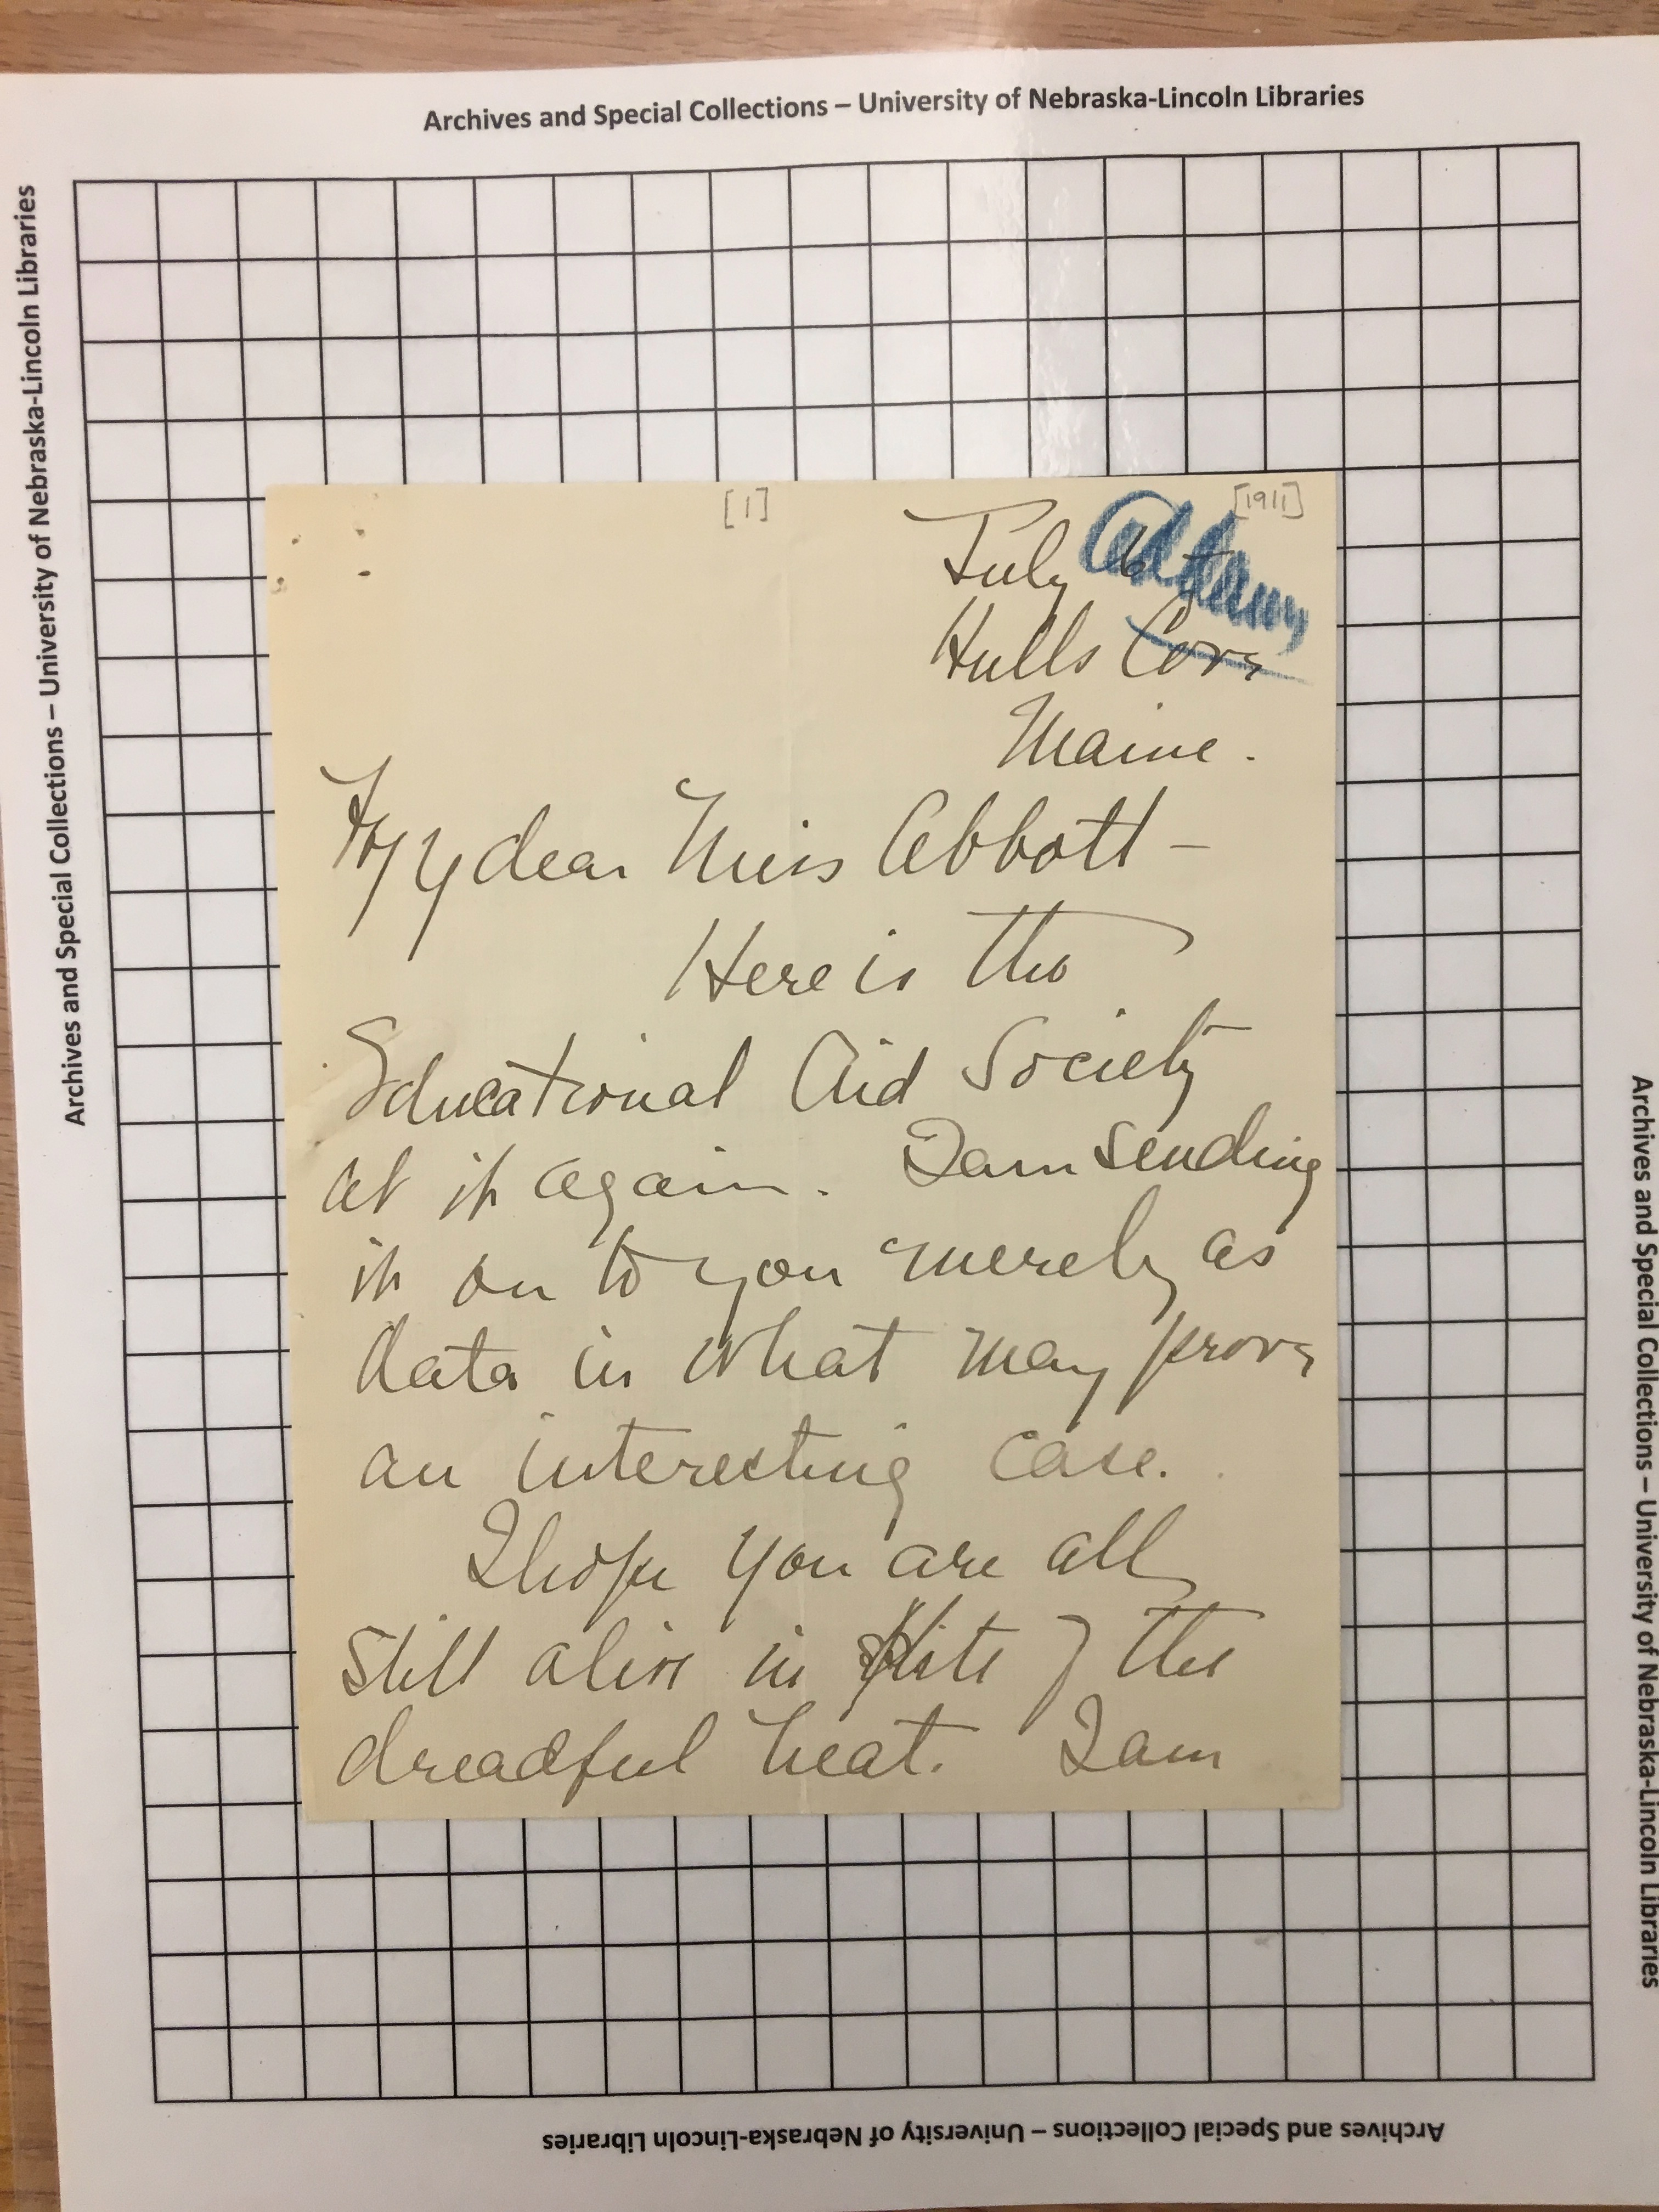 Archives and Special Collections – University of Nebraska-Lincoln Libraries
Archives and Special Collections – University of Nebraska-Lincoln Libraries
[1]
[1911]
Addams
July 6
Hulls Cove
Maine.
My dear Miss Abbott –
Here is the
Educational Aid Society
at it again. I am sending
it on to you merely as
data in what may prove
an interesting case.
I hope you are all
still alive in spite of the
dreadful heat. I am
Archives and Special Collections – University of Nebraska-Lincoln Libraries
Archives and Special Collections – University of Nebraska-Lincoln Libraries